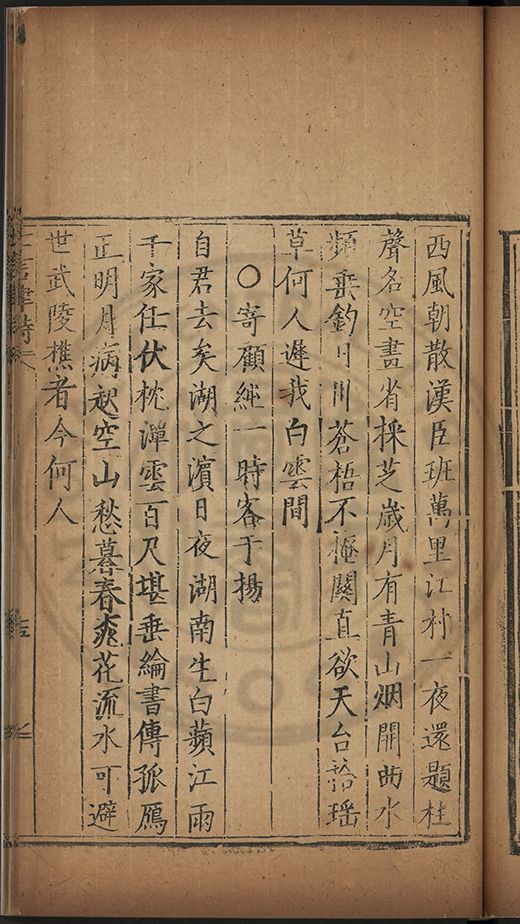 西風朝散漢臣班萬里江村一夜還題柱
聲名空畫省採芝歲月有青山烟開曲水
頻垂釣月川蒼梧不掩關直欲天台拾瑶
草何人遲我白雲間
○寄顧純一時客于揚
自君去矣湖之濱日夜湖南生白蘋江雨
千家任伏枕潭雲百尺堪垂綸書傳孤鴈
正明月病起空山愁暮春桃花流水可避
世武陵樵者今何人
七言律詩